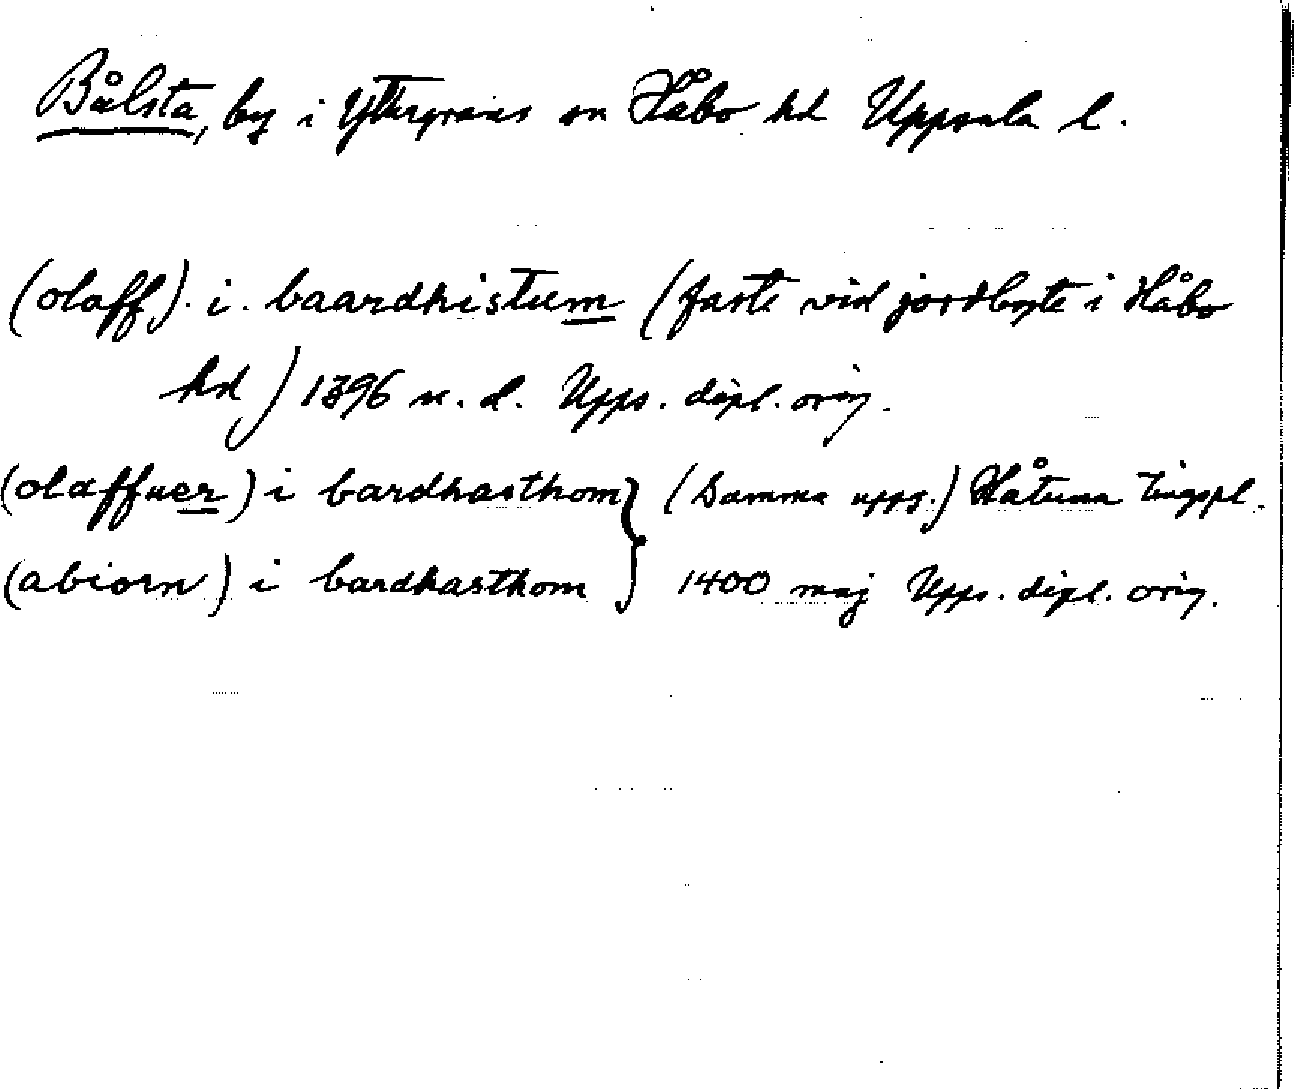 Bålsta, by i Yttergrans sn Håbo hd Uppsala l.
(olaff) i baardhistum (faste vid jordbyte i Håbo
hd) 1396 u. d. Upps. dipl. orig.
(olaffuer) i bardhasthom } (Samma upps.) Håtuna tingspl.
(abiorn) i bardhasthom } 1400 maj Upps. dipl. orig.